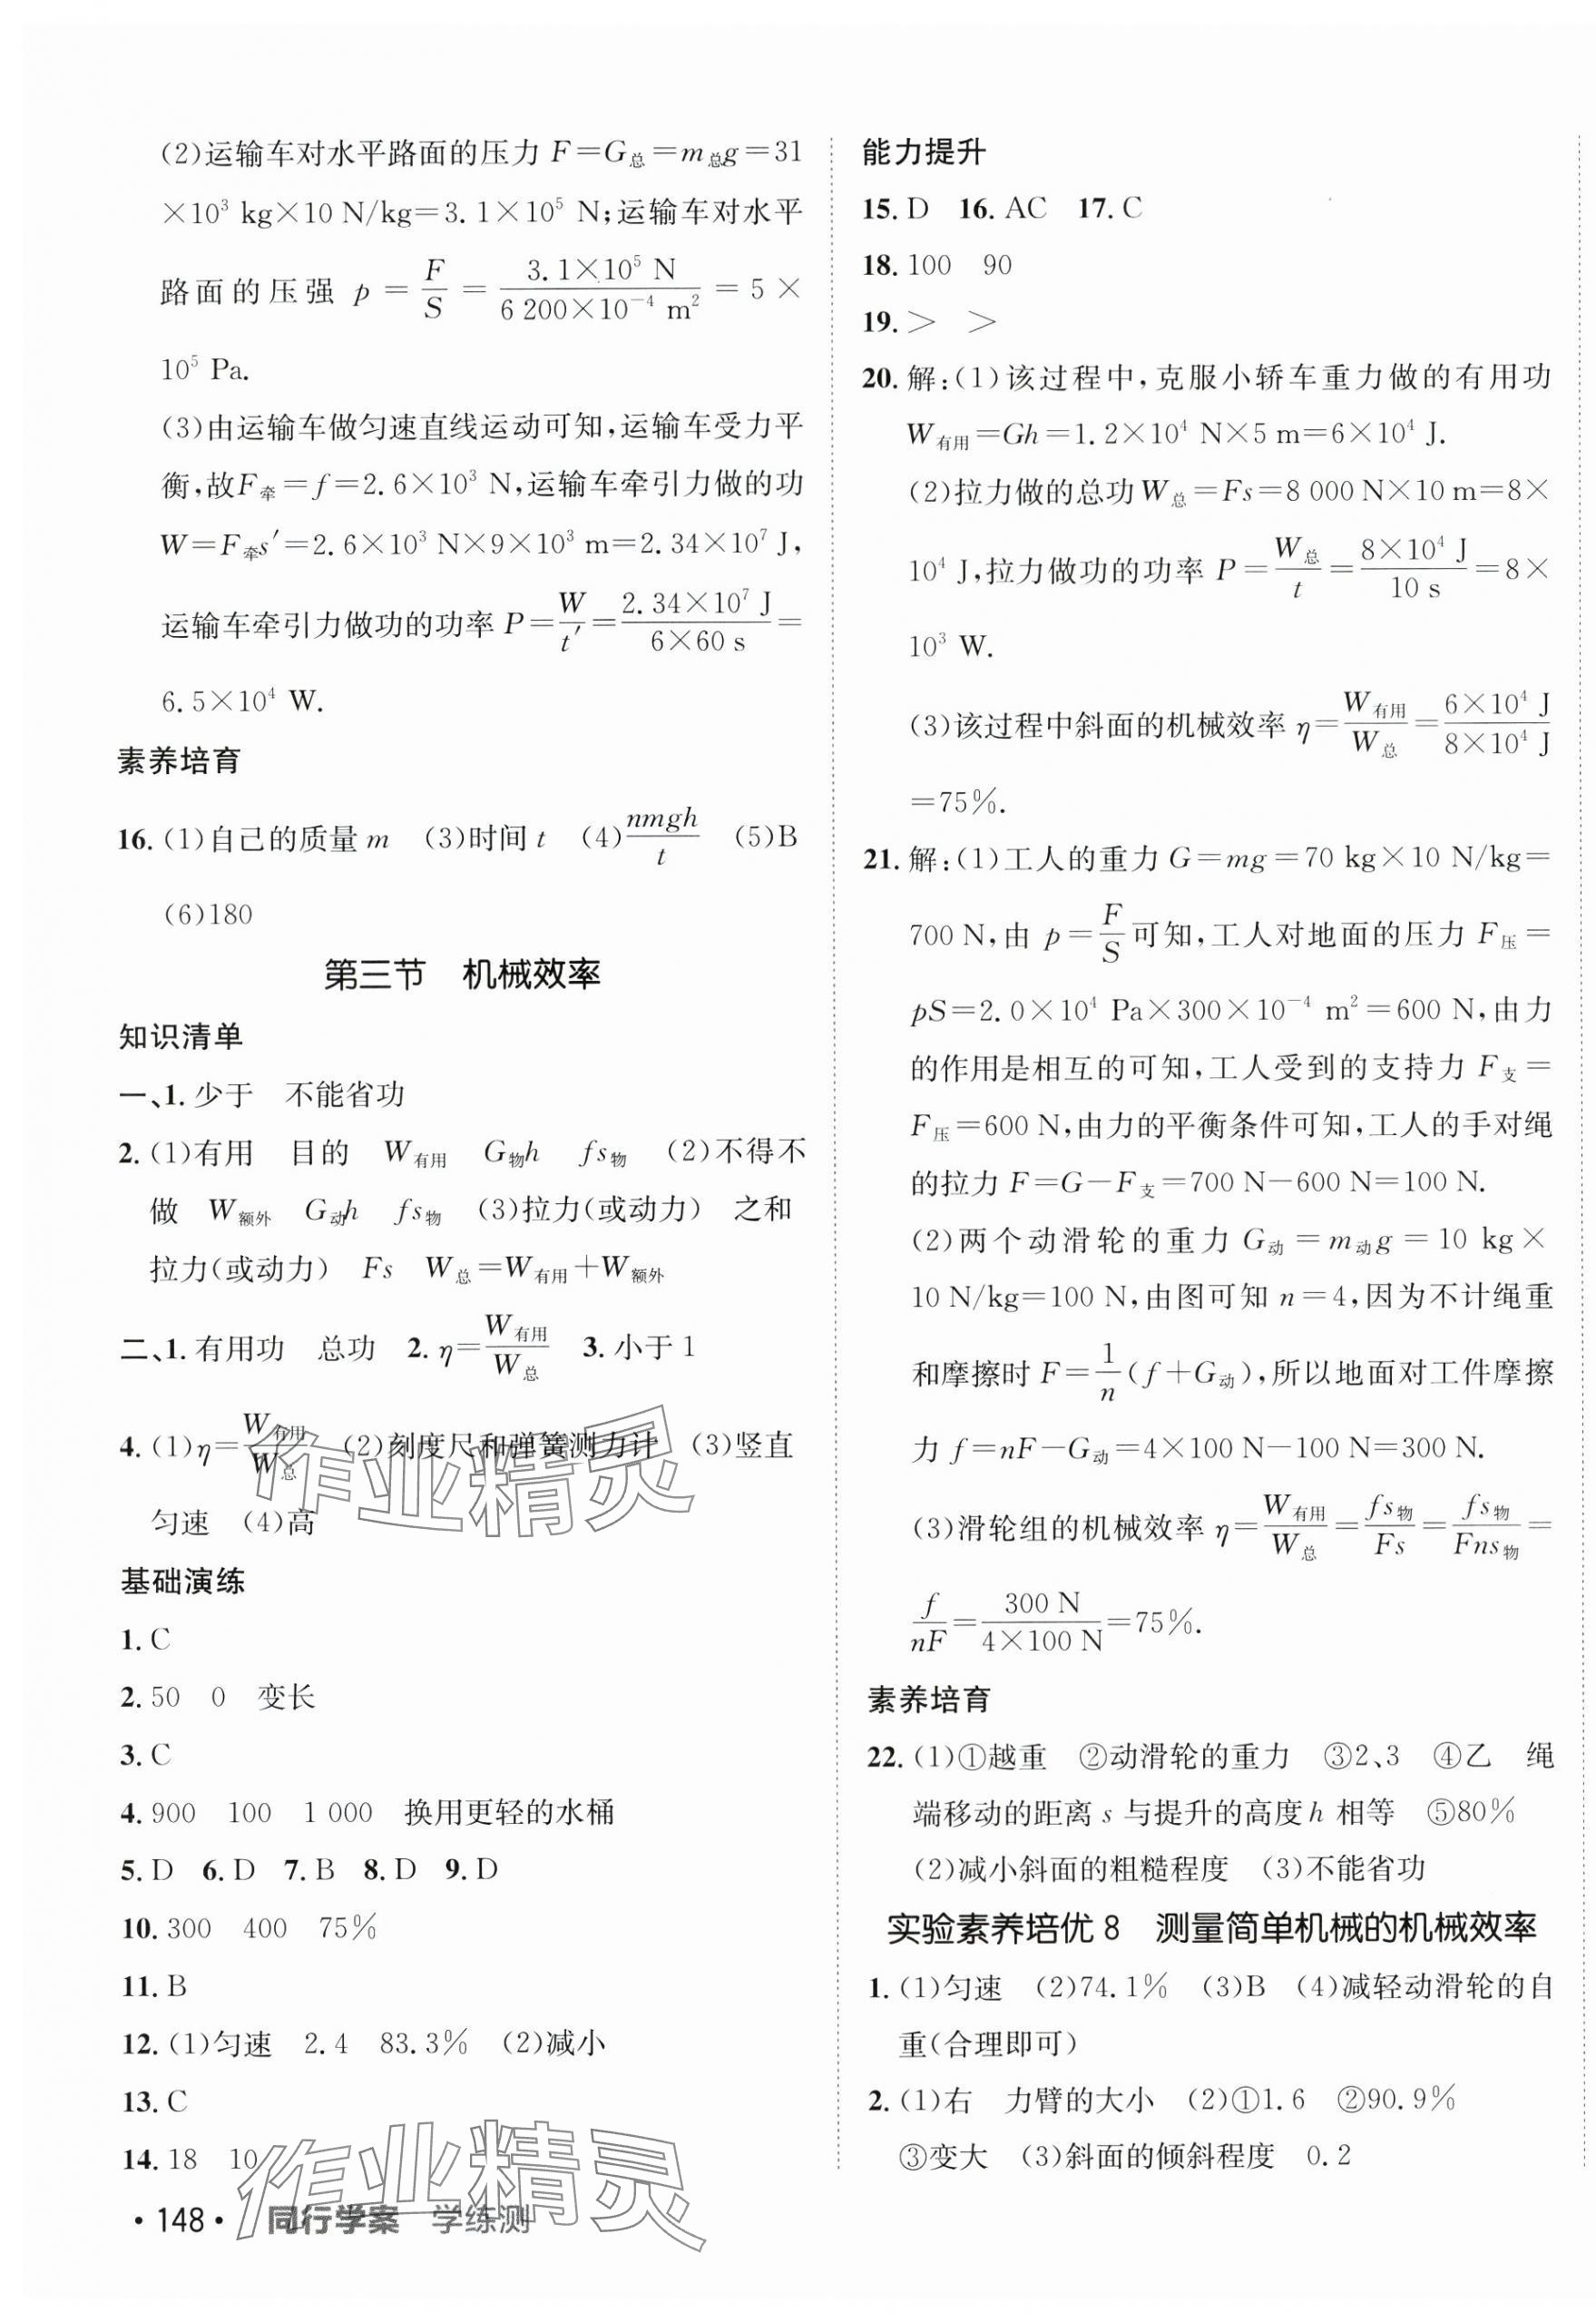 (2)运输车对水平路面的压力 F=G总=m总g=31
×10³ kg×10 N/kg=3.1×10⁵ N;运输车对水平
路面的压强 p=F/S=3.1×10⁵ N/6 200×10⁻⁴ m²=5×
10⁵ Pa.
(3)由运输车做匀速直线运动可知,运输车受力平
衡,故F牵=f=2.6×10³ N,运输车牵引力做的功
W=F牵s′=2.6×10³ N×9×10³ m=2.34×10⁷ J,
运输车牵引力做功的功率 P=W/t′=2.34×10⁷ J/6×60 s=
6.5×10⁴ W.
素养培育
16.(1)自己的质量 m (3)时间 t (4)nmgh/t (5)B
(6)180
第三节 机械效率
知识清单
一、1.少于 不能省功
2.(1)有用 目的 W有用 G物h fs物 (2)不得不
做 W额外 G动h fs物 (3)拉力(或动力) 之和
拉力(或动力) Fs W总=W有用+W额外
二、1.有用功 总功 2. η=W有用/W总 3.小于 1
4.(1)η=W有用/W总 (2)刻度尺和弹簧测力计 (3)竖直
匀速 (4)高
基础演练
1. C
2. 50 0 变长
3. C
4. 900 100 1 000 换用更轻的水桶
5. D 6. D 7. B 8. D 9. D
10. 300 400 75%
11. B
12.(1)匀速 2.4 83.3% (2)减小
13. C
14. 18 10
·148· 同行学案 学练测
能力提升
15. D 16. AC 17. C
18. 100 90
19. > >
20.解:(1)该过程中,克服小轿车重力做的有用功
W有用=Gh=1.2×10⁴ N×5 m=6×10⁴ J.
(2)拉力做的总功W总=Fs=8 000 N×10 m=8×
10⁴ J,拉力做功的功率 P=W总/t=8×10⁴ J/10 s=8×
10³ W.
(3)该过程中斜面的机械效率 η=W有用/W总=6×10⁴ J/8×10⁴ J
=75%.
21.解:(1)工人的重力 G=mg=70 kg×10 N/kg=
700 N,由 p=F/S可知,工人对地面的压力 F压=
pS=2.0×10⁴ Pa×300×10⁻⁴ m²=600 N,由力
的作用是相互的可知,工人受到的支持力 F支=
F压=600 N,由力的平衡条件可知,工人的手对绳
的拉力 F=G-F支=700 N-600 N=100 N.
(2)两个动滑轮的重力 G动=m动g=10 kg×
10 N/kg=100 N,由图可知 n=4,因为不计绳重
和摩擦时 F=1/n(f+G动),所以地面对工件摩擦
力 f=nF-G动=4×100 N-100 N=300 N.
(3)滑轮组的机械效率 η=W有用/W总=fs物/Fs=fs物/Fns物=
f/nF=300 N/4×100 N=75%.
素养培育
22.(1)①越重 ②动滑轮的重力 ③2、3 ④乙 绳
端移动的距离 s 与提升的高度 h 相等 ⑤80%
(2)减小斜面的粗糙程度 (3)不能省功
实验素养培优 8 测量简单机械的机械效率
1.(1)匀速 (2)74.1% (3)B (4)减轻动滑轮的自
重(合理即可)
2.(1)右 力臂的大小 (2)①1.6 ②90.9%
③变大 (3)斜面的倾斜程度 0.2
作业精灵
作业精灵